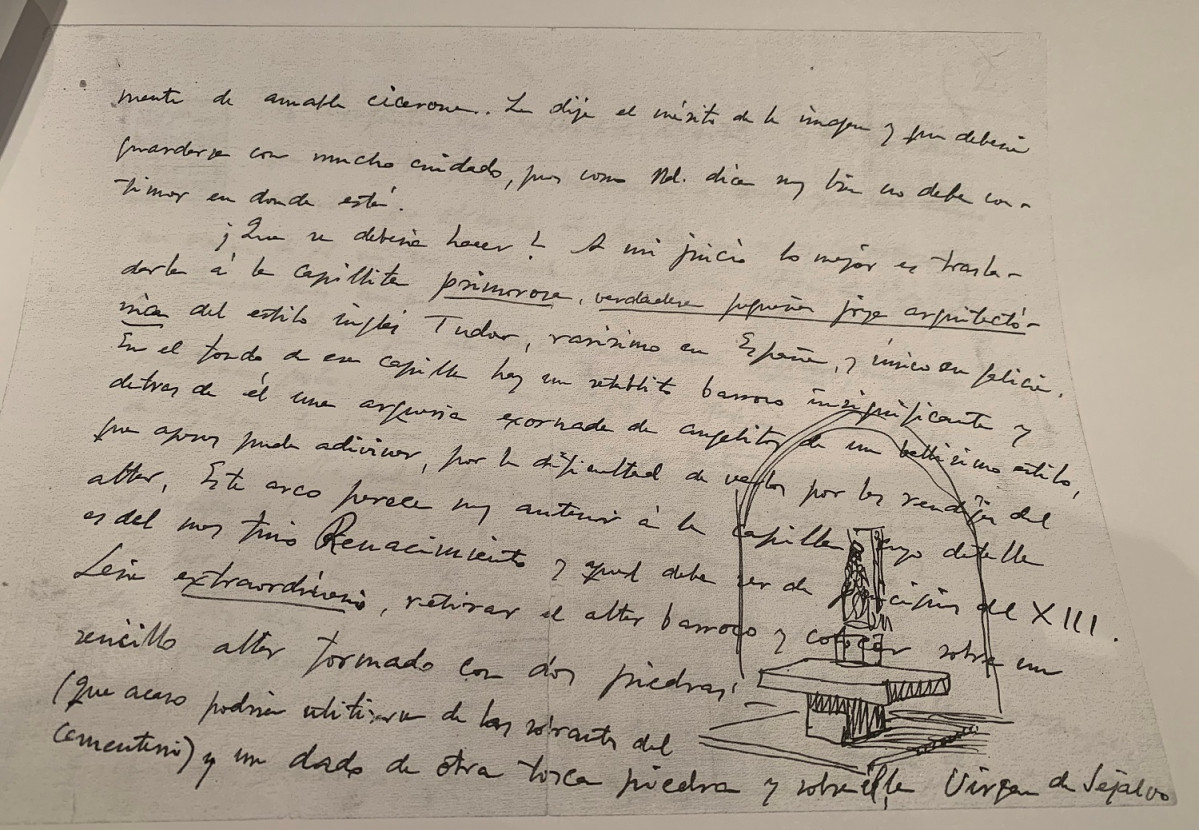 mente de amable cicerone.. Le dije el mérito de la imagen y que debería
guardarse con mucho cuidado, pues como Vd. dice muy bien no debe con-
tinuar en donde está.
¡Que se debería hacer! A mi juicio lo mejor es trasla-
darla á la capillita primorosa, verdadera pequeña joya arquitectó-
nica del estilo inglés Tudor, rarísimo en España, y único en Galicia.
En el fondo de esa capilla hay un retablito barroco insignificante y
detras de él una arquería exornada de angelitos de un bellísimo estilo,
que apenas pude adivinar, por la dificultad de verlos por las rendijas del
altar. Este arco parece muy anterior á la capilla cuyo detalle
es del mas fino Renacimiento y debe ser de principios del XIII.
Seria extraordinario, retirar el altar barroco y colocar sobre un
sencillo altar formado con dos piedras
(Que acaso podrian utilizarse de las sobrantes del
Cementerio) y un dado de otra tosca piedra y sobre el la Virgen de Sejalvo